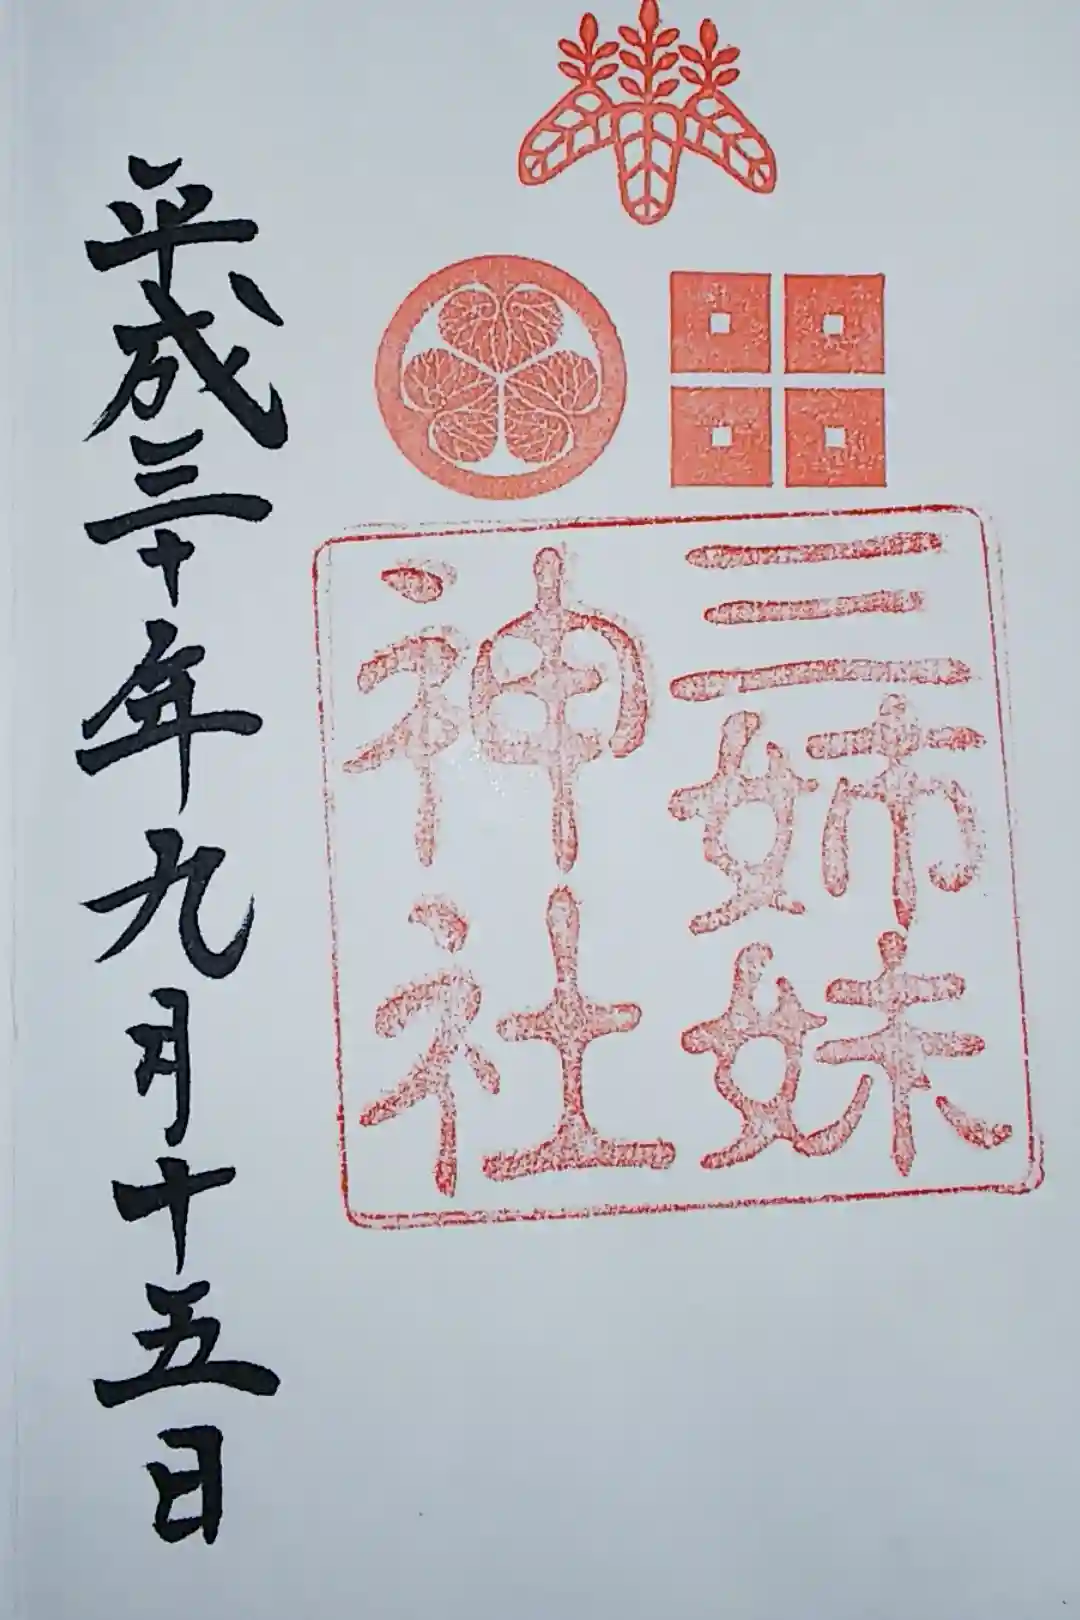 三姉妹
神社
平成三十年九月十五日